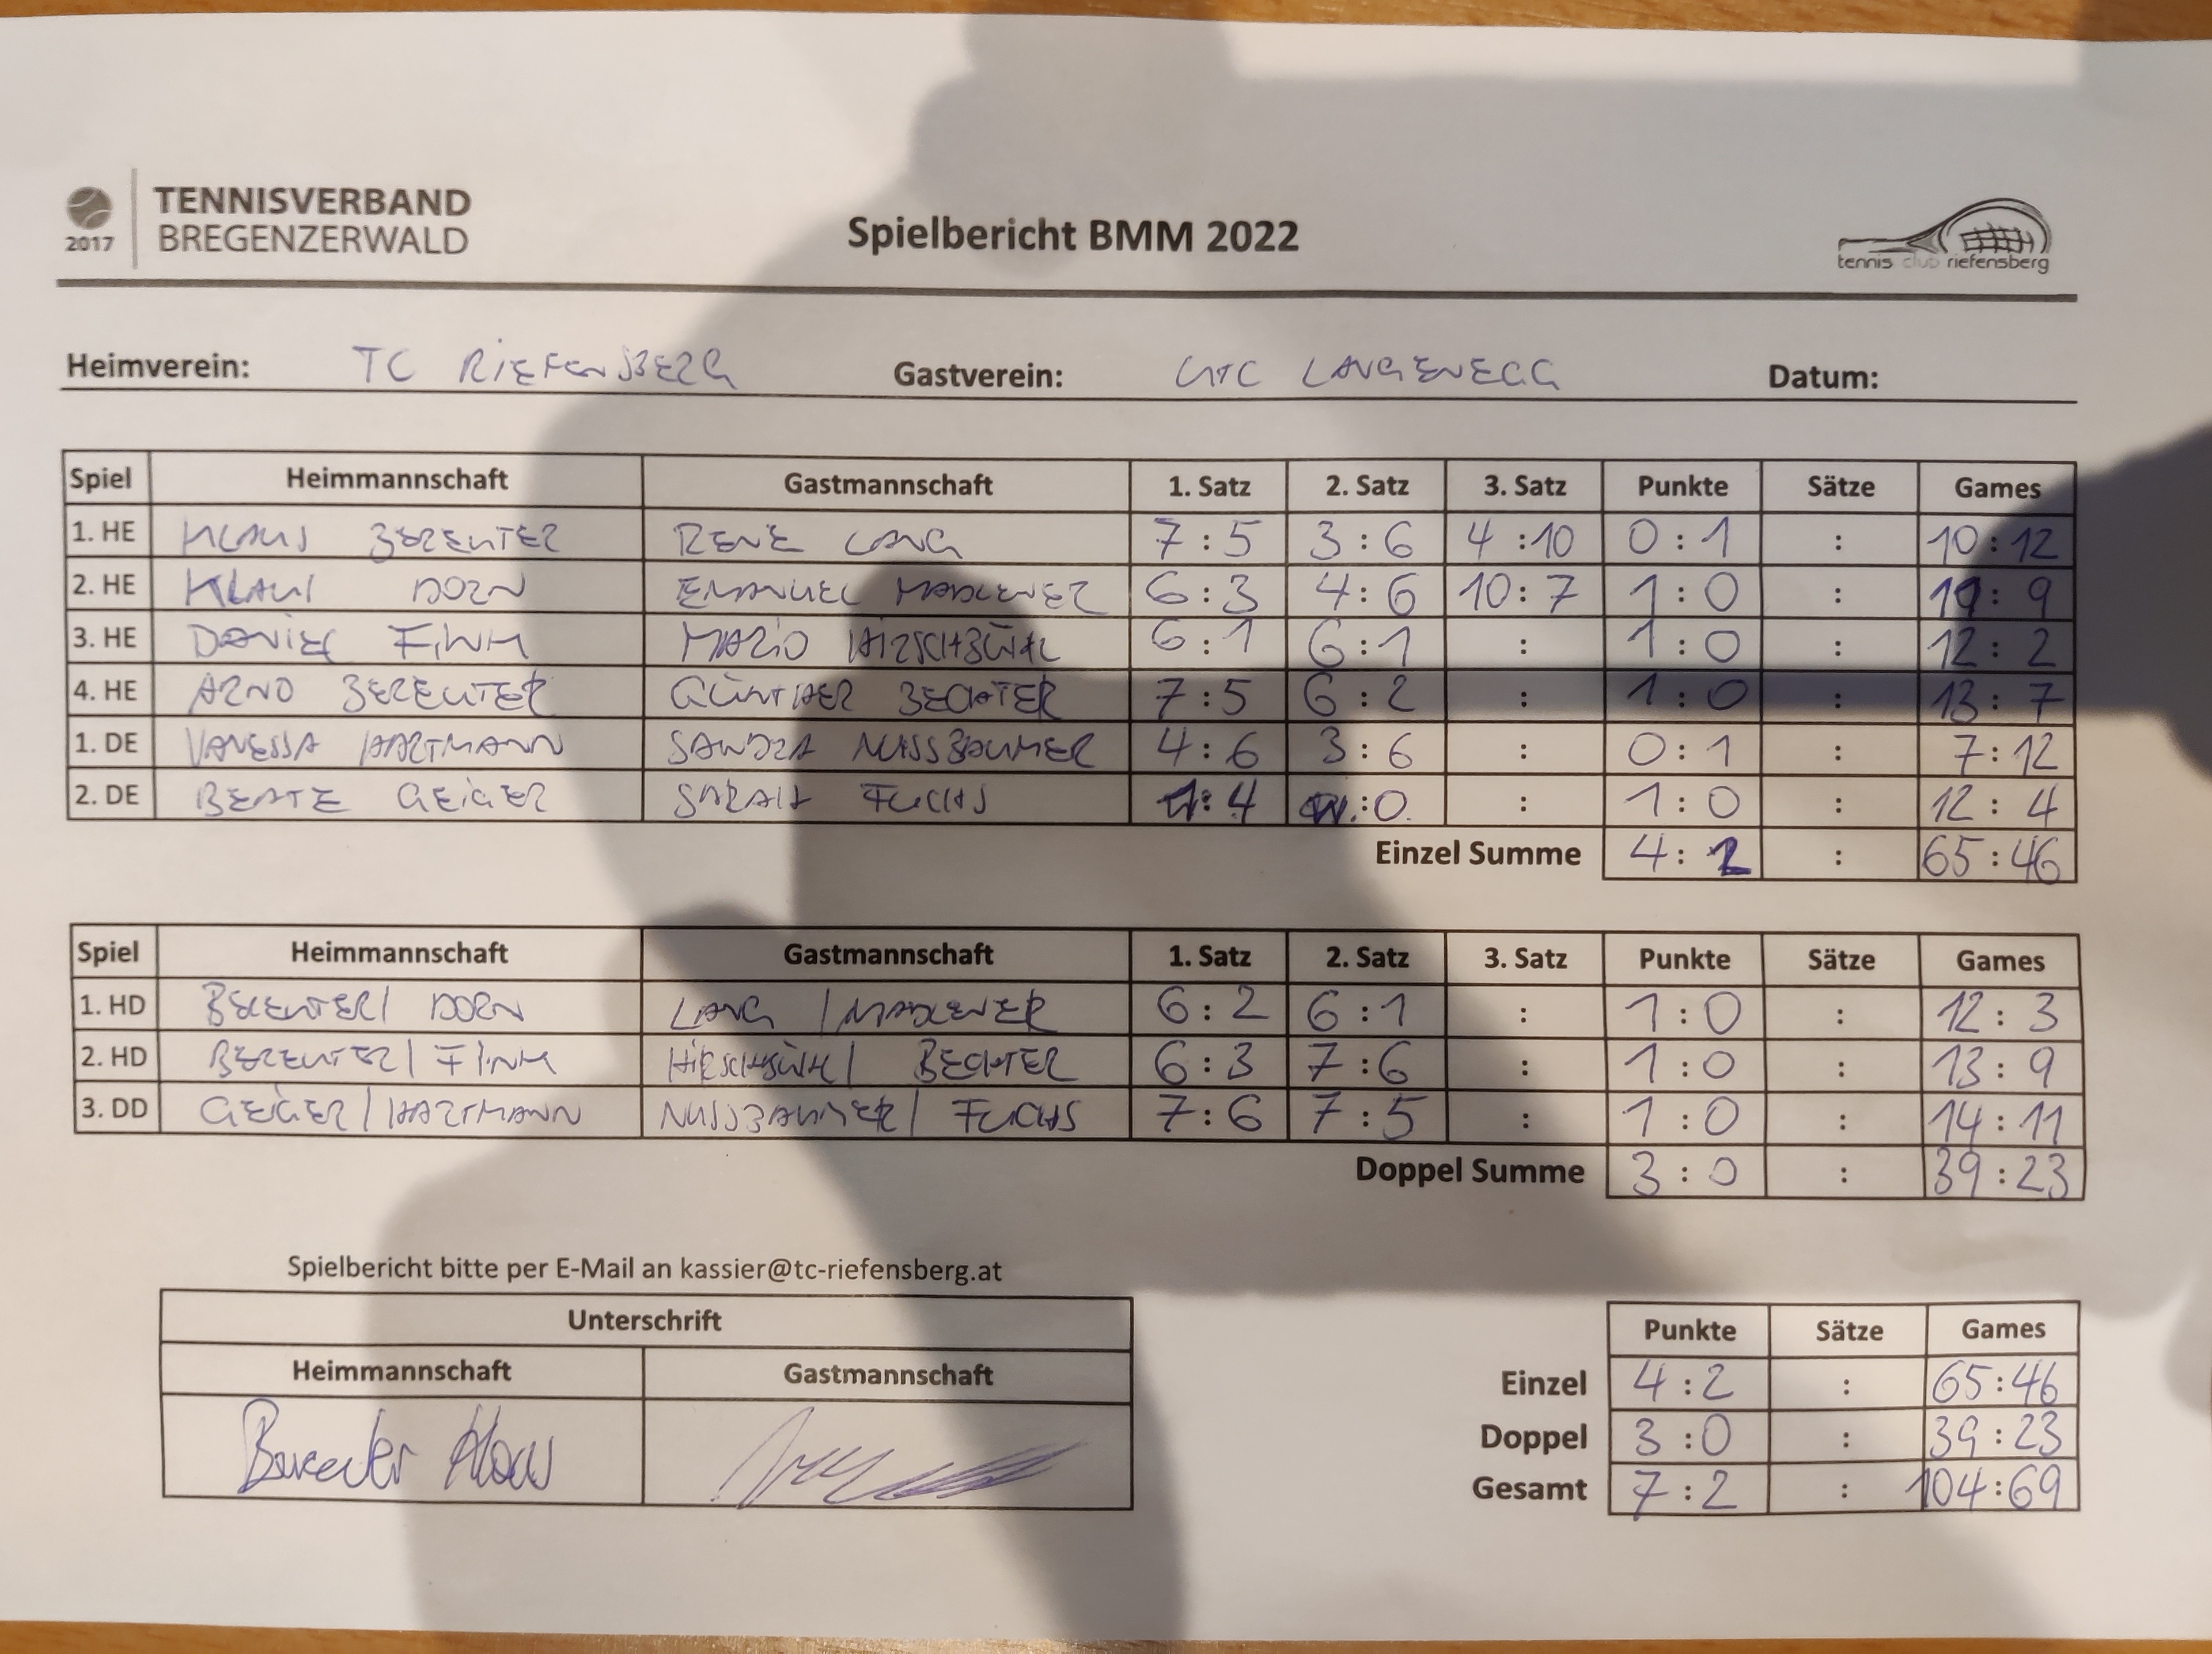 TENNISVERBAND
BREGENZERWALD
2017
Spielbericht BMM 2022
tennis club riefensberg
Heimverein: TC RIEFENSBERG Gastverein: UTC LANGENEGG Datum:
Spiel Heimmannschaft Gastmannschaft 1. Satz 2. Satz 3. Satz Punkte Sätze Games
1. HE KLAUS BEREUTER RENE LANG 7:5 3:6 4:10 0:1 : 10:12
2. HE KLAUS DORN EMANUEL MADLENER 6:3 4:6 10:7 1:0 : : 9
3. HE DANIEL FINK MARIO HIRSCHBÜHL 6:1 6:1 : 1:0 : 12:2
4. HE ARNO BEREUTER GÜNTHER BECHTER 7:5 6:2 : 1:0 : 13:7
1. DE VANESSA HARTMANN SANDRA NUSSBAUMER 4:6 3:6 : 0:1 : 7:12
2. DE BEATE GEIGER SARAH FUCHS :4 :0 : 1:0 : 12:4
Einzel Summe 4:2 : 65:46
Spiel Heimmannschaft Gastmannschaft 1. Satz 2. Satz 3. Satz Punkte Sätze Games
1. HD BEREUTER/ DORN LANG /MADLENER 6:2 6:1 : 1:0 : 12:3
2. HD BEREUTER/ FINK HIRSCHBÜHL/ BECHTER 6:3 7:6 : 1:0 : 13:9
3. DD GEIGER/HARTMANN NUSSBAUMER/ FUCHS 7:6 7:5 : 1:0 : 14:11
Doppel Summe 3:0 : 39:23
Spielbericht bitte per E-Mail an kassier@tc-riefensberg.at
Unterschrift
Heimmannschaft Gastmannschaft
Bereuter Klaus
Punkte Sätze Games
Einzel 4:2 : 65:46
Doppel 3:0 : 39:23
Gesamt 7:2 : 104:69